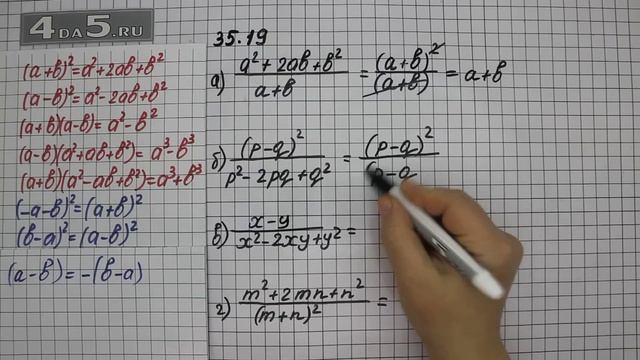 4DA5.RU
(a+b)²=a²+2ab+b²
(a-b)²=a²-2ab+b²
(a+b)(a-b)=a²-b²
(a-b)(a²+ab+b²)=a³-b³
(a+b)(a²-ab+b²)=a³+b³
(-a-b)²=(a+b)²
(b-a)²=(a-b)²
(a-b)=-(b-a)
35.19
а) (a²+2ab+b²)/(a+b) = (a+b)²/(a+b) = a+b
б) (p-q)²/(p²-2pq+q²) = (p-q)²/(p-q
в) (x-y)/(x²-2xy+y²) =
г) (m²+2mn+n²)/(m+n)² =